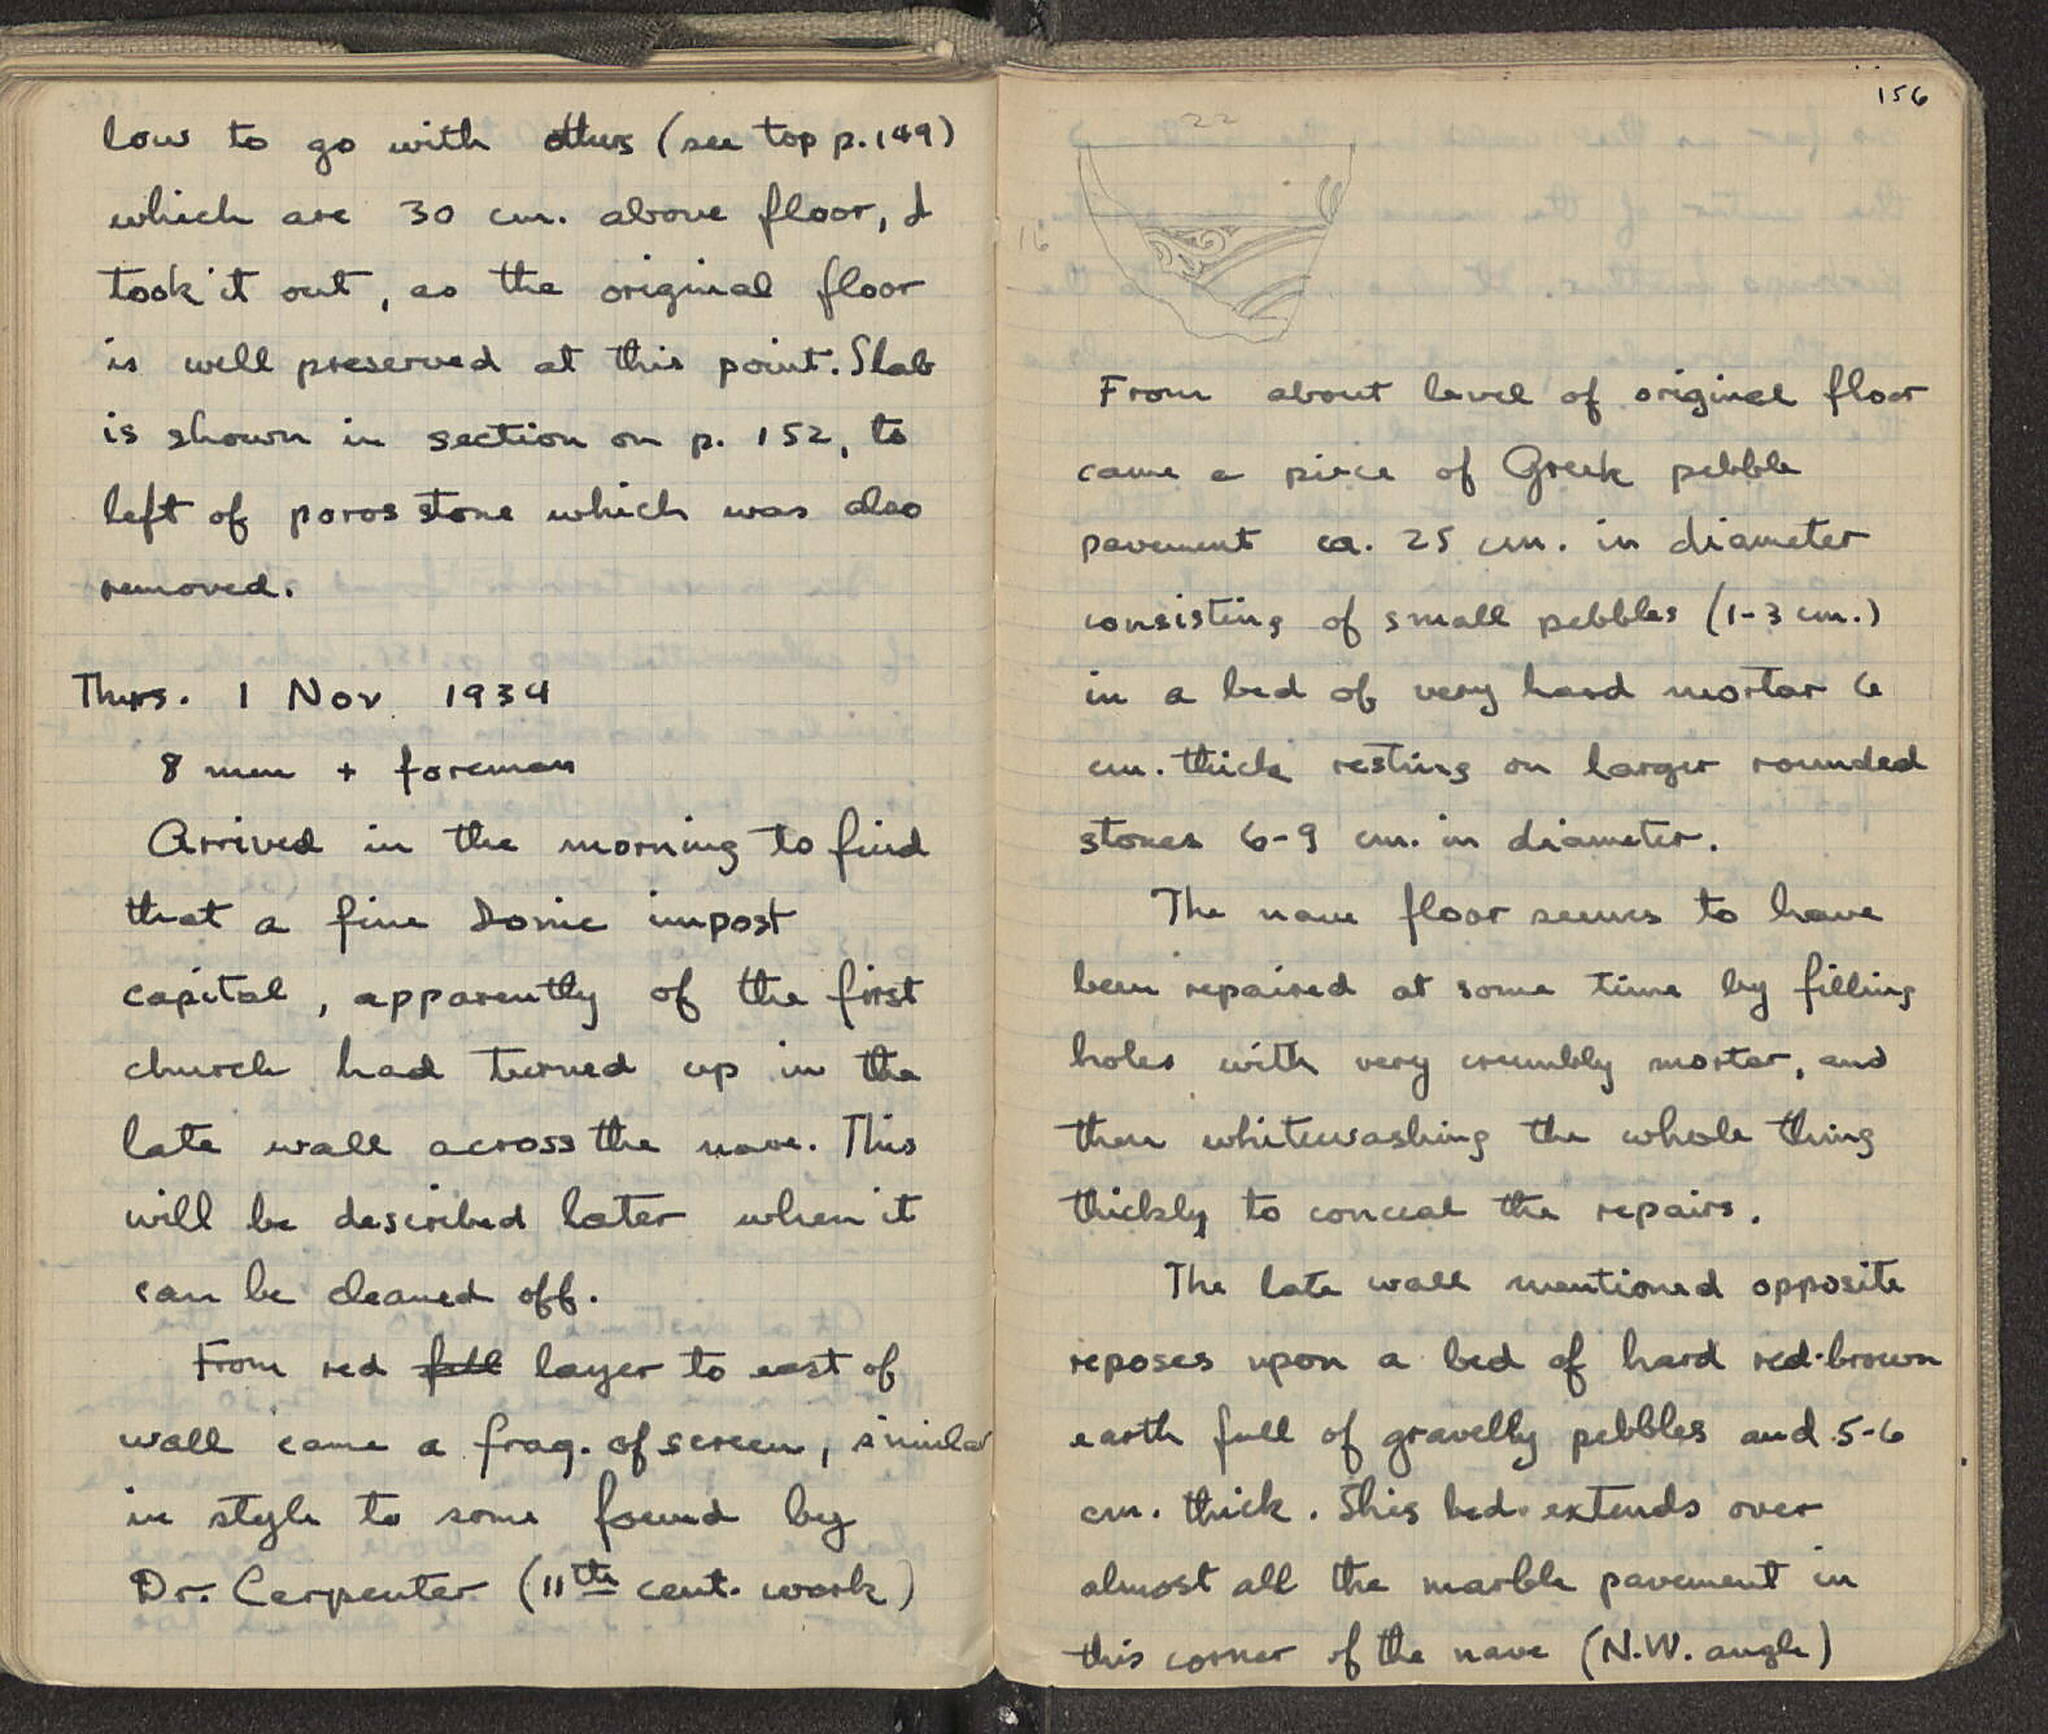 low to go with others (see top p. 149)
which are 30 cm. above floor, &
took it out, as the original floor
is well preserved at this point. Slab
is shown in section on p. 152, to
left of poros stone which was also
removed.
Thurs. 1 Nov 1934
8 men + foreman
Arrived in the morning to find
that a fine Ionic impost
capital, apparently of the first
church had turned up in the
late wall across the nave. This
will be described later when it
can be cleaned off.
From red fill layer to east of
wall came a frag. of screen, similar
in style to some found by
Dr. Carpenter (11th cent. work)
156
22
16
From about level of original floor
came a piece of Greek pebble
pavement ca. 25 cm. in diameter
consisting of small pebbles (1-3 cm.)
in a bed of very hard mortar 6
cm. thick resting on larger rounded
stones 6-9 cm. in diameter.
The nave floor seems to have
been repaired at some time by filling
holes with very crumbly mortar, and
then whitewashing the whole thing
thickly to conceal the repairs.
The late wall mentioned opposite
reposes upon a bed of hard red-brown
earth full of gravelly pebbles and 5-6
cm. thick. This bed extends over
almost all the marble pavement in
this corner of the nave (N.W. angle)